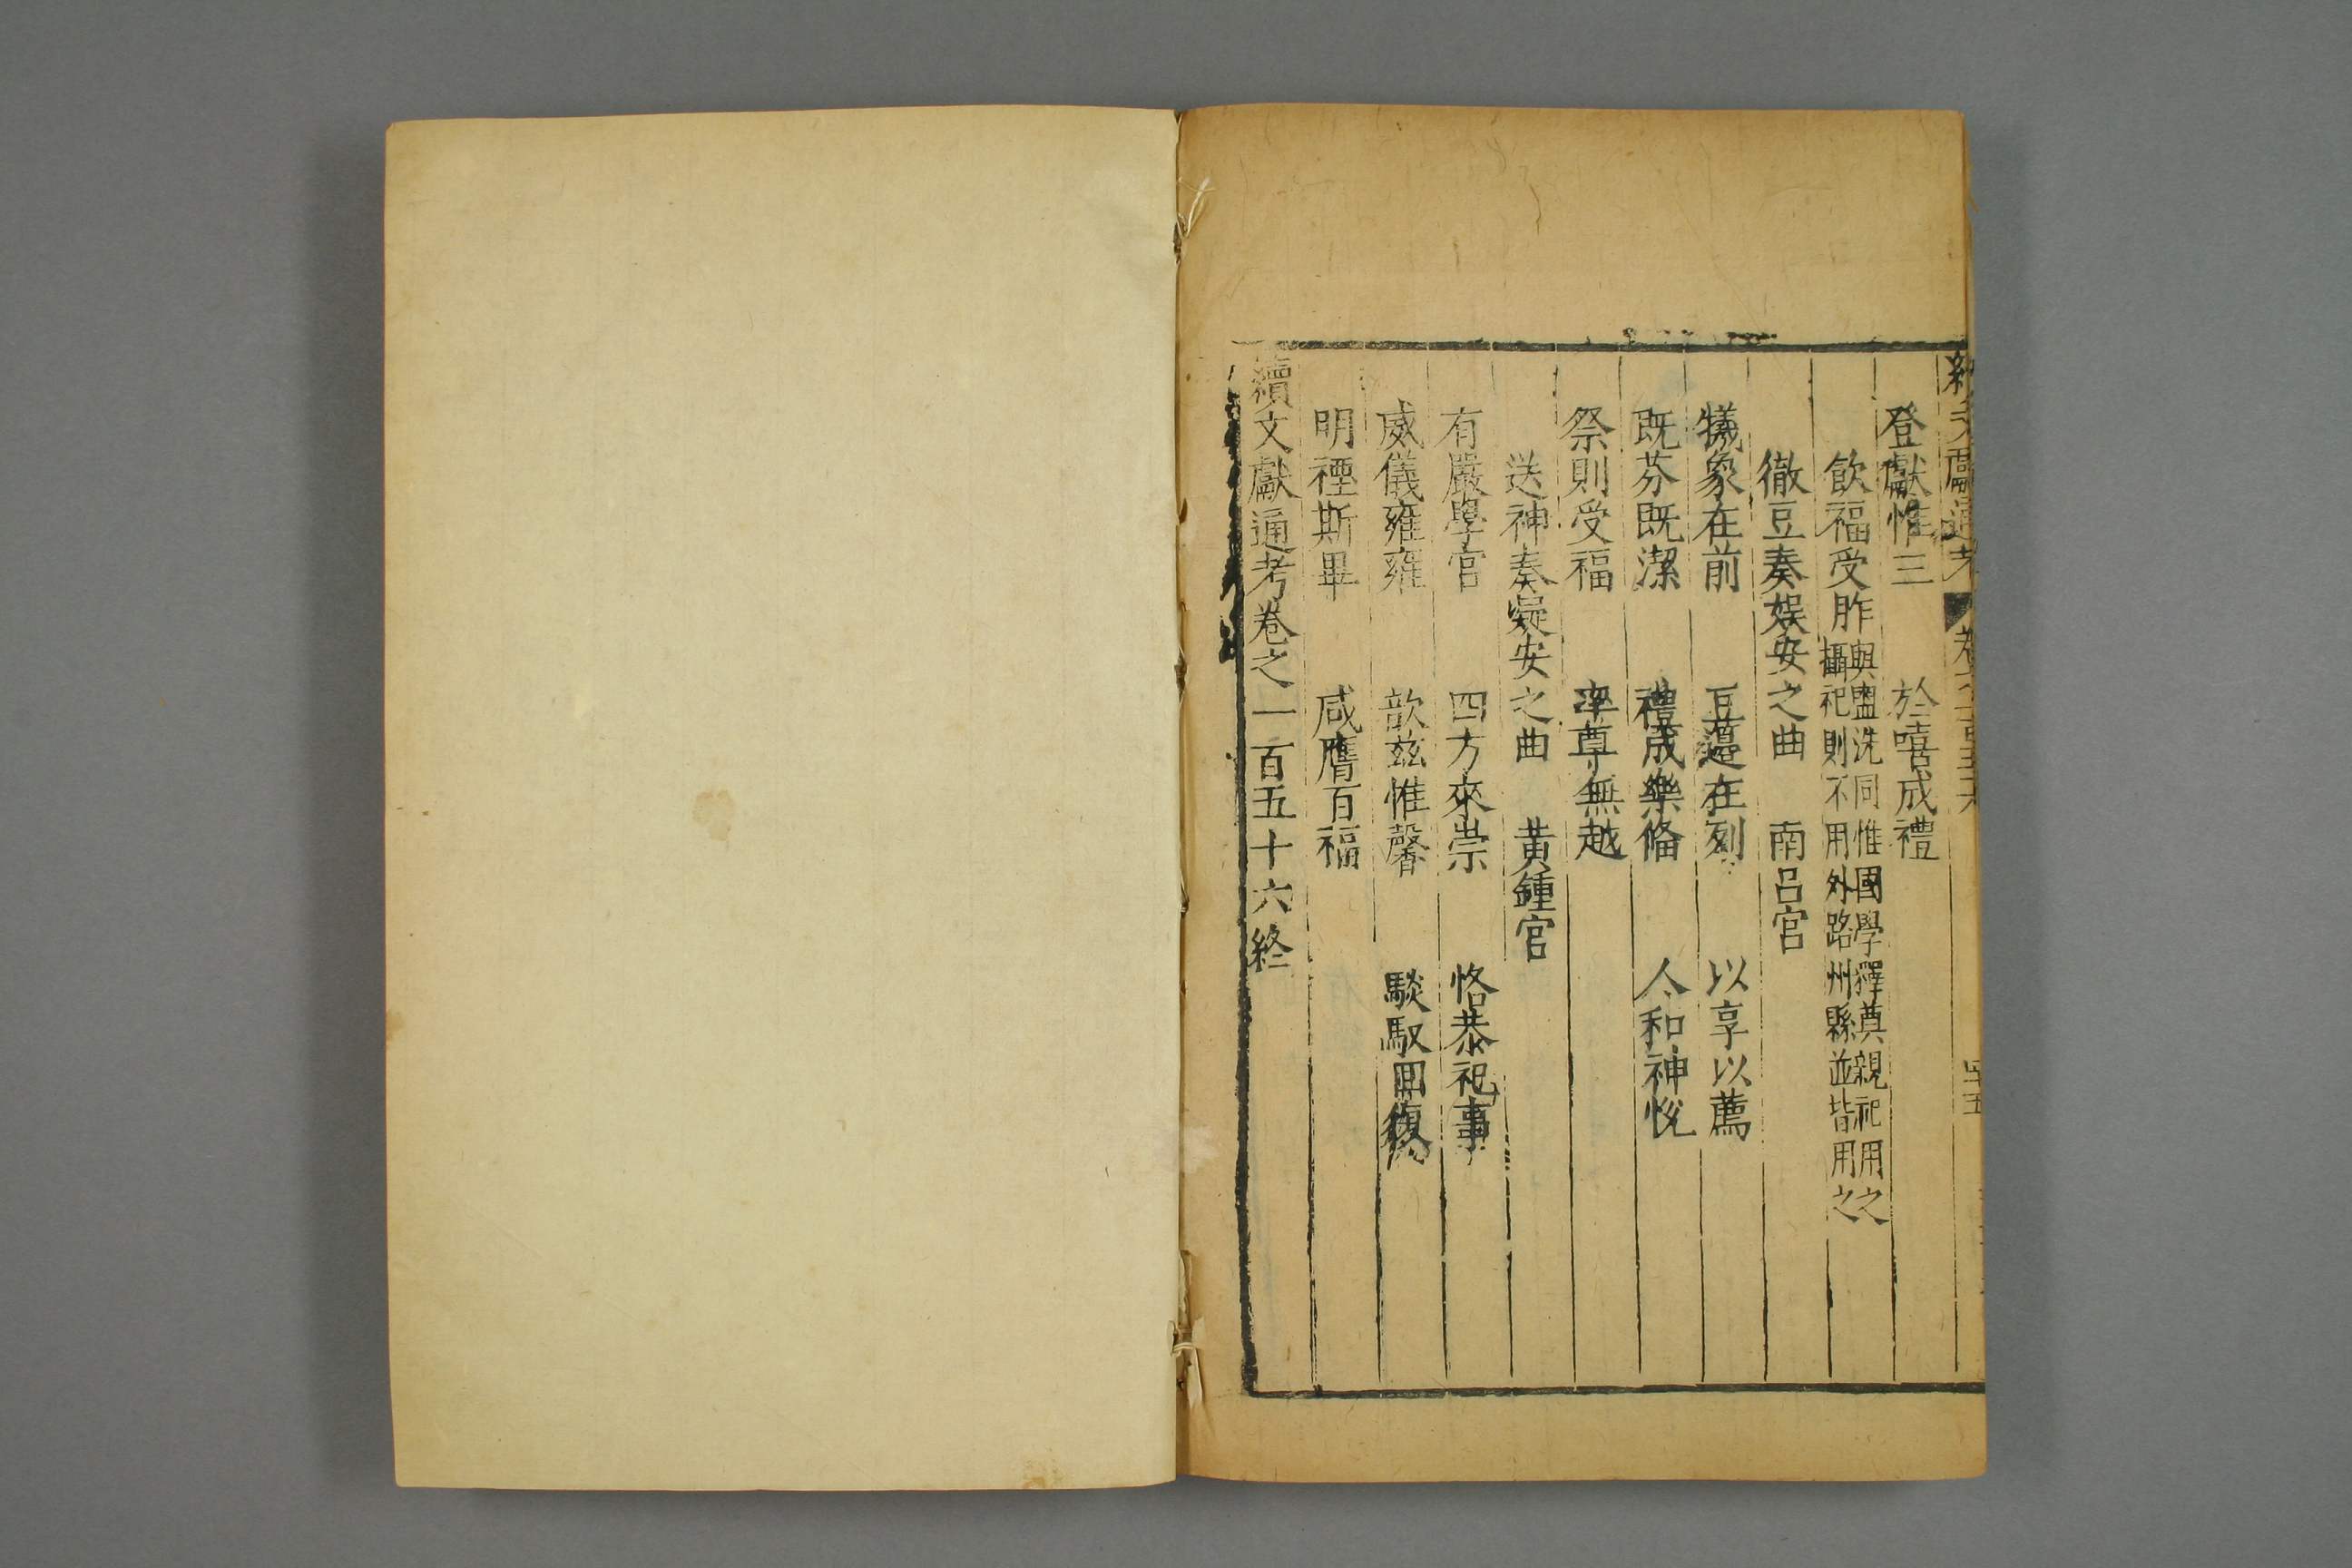 續文獻通考 卷一百五十六 四十五
登獻惟三 於嘻成禮
飲福受胙 與盥洗同惟國學釋奠親祀用之
攝祀則不用外路州縣並皆用之
徹豆奏娛安之曲 南呂宮
犧象在前 豆籩在列 以享以薦
既芬既潔 禮成樂俻 人和神悅
祭則受福 率尊無越
送神奏凝安之曲 黃鍾宮
有嚴學宮 四方來崇 恪恭祀事
威儀雍雍 歆兹惟馨 㷋馭回復
明禋斯畢 咸膺百福
續文獻通考卷之一百五十六終